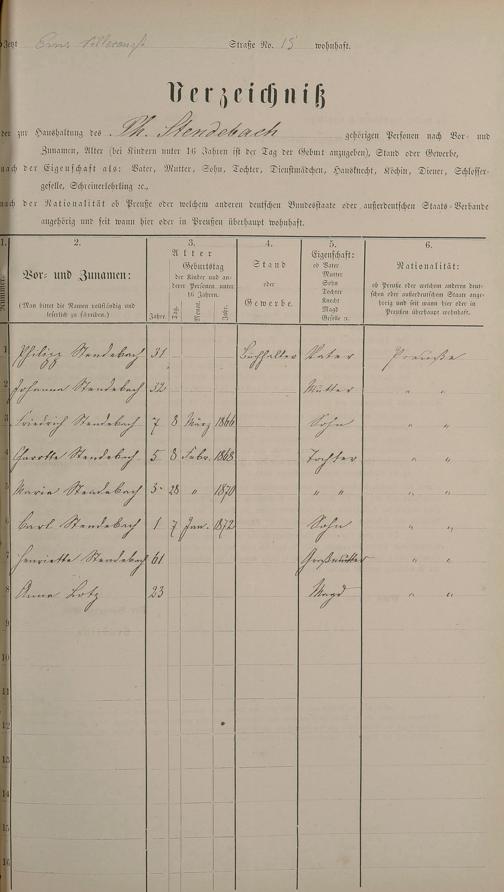 Jetzt Straße No. 15 wohnhaft.
Verzeichniß
der zur Haushaltung des Ph. Stendebach gehörigen Personen nach Vor- und
Zunamen, Alter (bei Kindern unter 16 Jahren ist der Tag der Geburt anzugeben), Stand oder Gewerbe,
nach der Eigenschaft als: Vater, Mutter, Sohn, Tochter, Dienstmädchen, Hausknecht, Köchin, Diener, Schlosser-
geselle, Schreinerlehrling ꝛc.,
nach der Nationalität ob Preuße oder welchem anderen deutschen Bundesstaate oder außerdeutschen Staats-Verbande
angehörig und seit wann hier oder in Preußen überhaupt wohnhaft.
1. 2. 3. 4. 5. 6.
Nummer.
Vor- und Zunamen:
(Man bittet die Namen vollständig und
leserlich zu schreiben.)
Alter
Geburtstag
der Kinder und an-
derer Personen unter
16 Jahren.
Jahre. Tag. Monat. Jahr.
Stand
oder
Gewerbe.
Eigenschaft:
ob Vater
Mutter
Sohn
Tochter
Knecht
Magd
Geselle ꝛc.
Nationalität:
ob Preuße oder welchem anderen deut-
schen oder außerdeutschen Staate ange-
hörig und seit wann hier oder in
Preußen überhaupt wohnhaft.
1 Philipp Stendebach 31 Buchhalter Vater Preuße
2 Johanna Stendebach 32 Mutter " "
3 Friedrich Stendebach 7 8 März 1866 Sohn " "
4 Charotte Stendebach 5 8 Febr. 1868 Tochter " "
5 Maria Stendebach 3 28 " 1870 " " " "
6 Carl Stendebach 1 7 Jan. 1872 Sohn " "
7 Henriette Stendebach 61 Großmutter " "
8 Anna Lotz 23 Magd " "
9
10
11
12
13
14
15
16